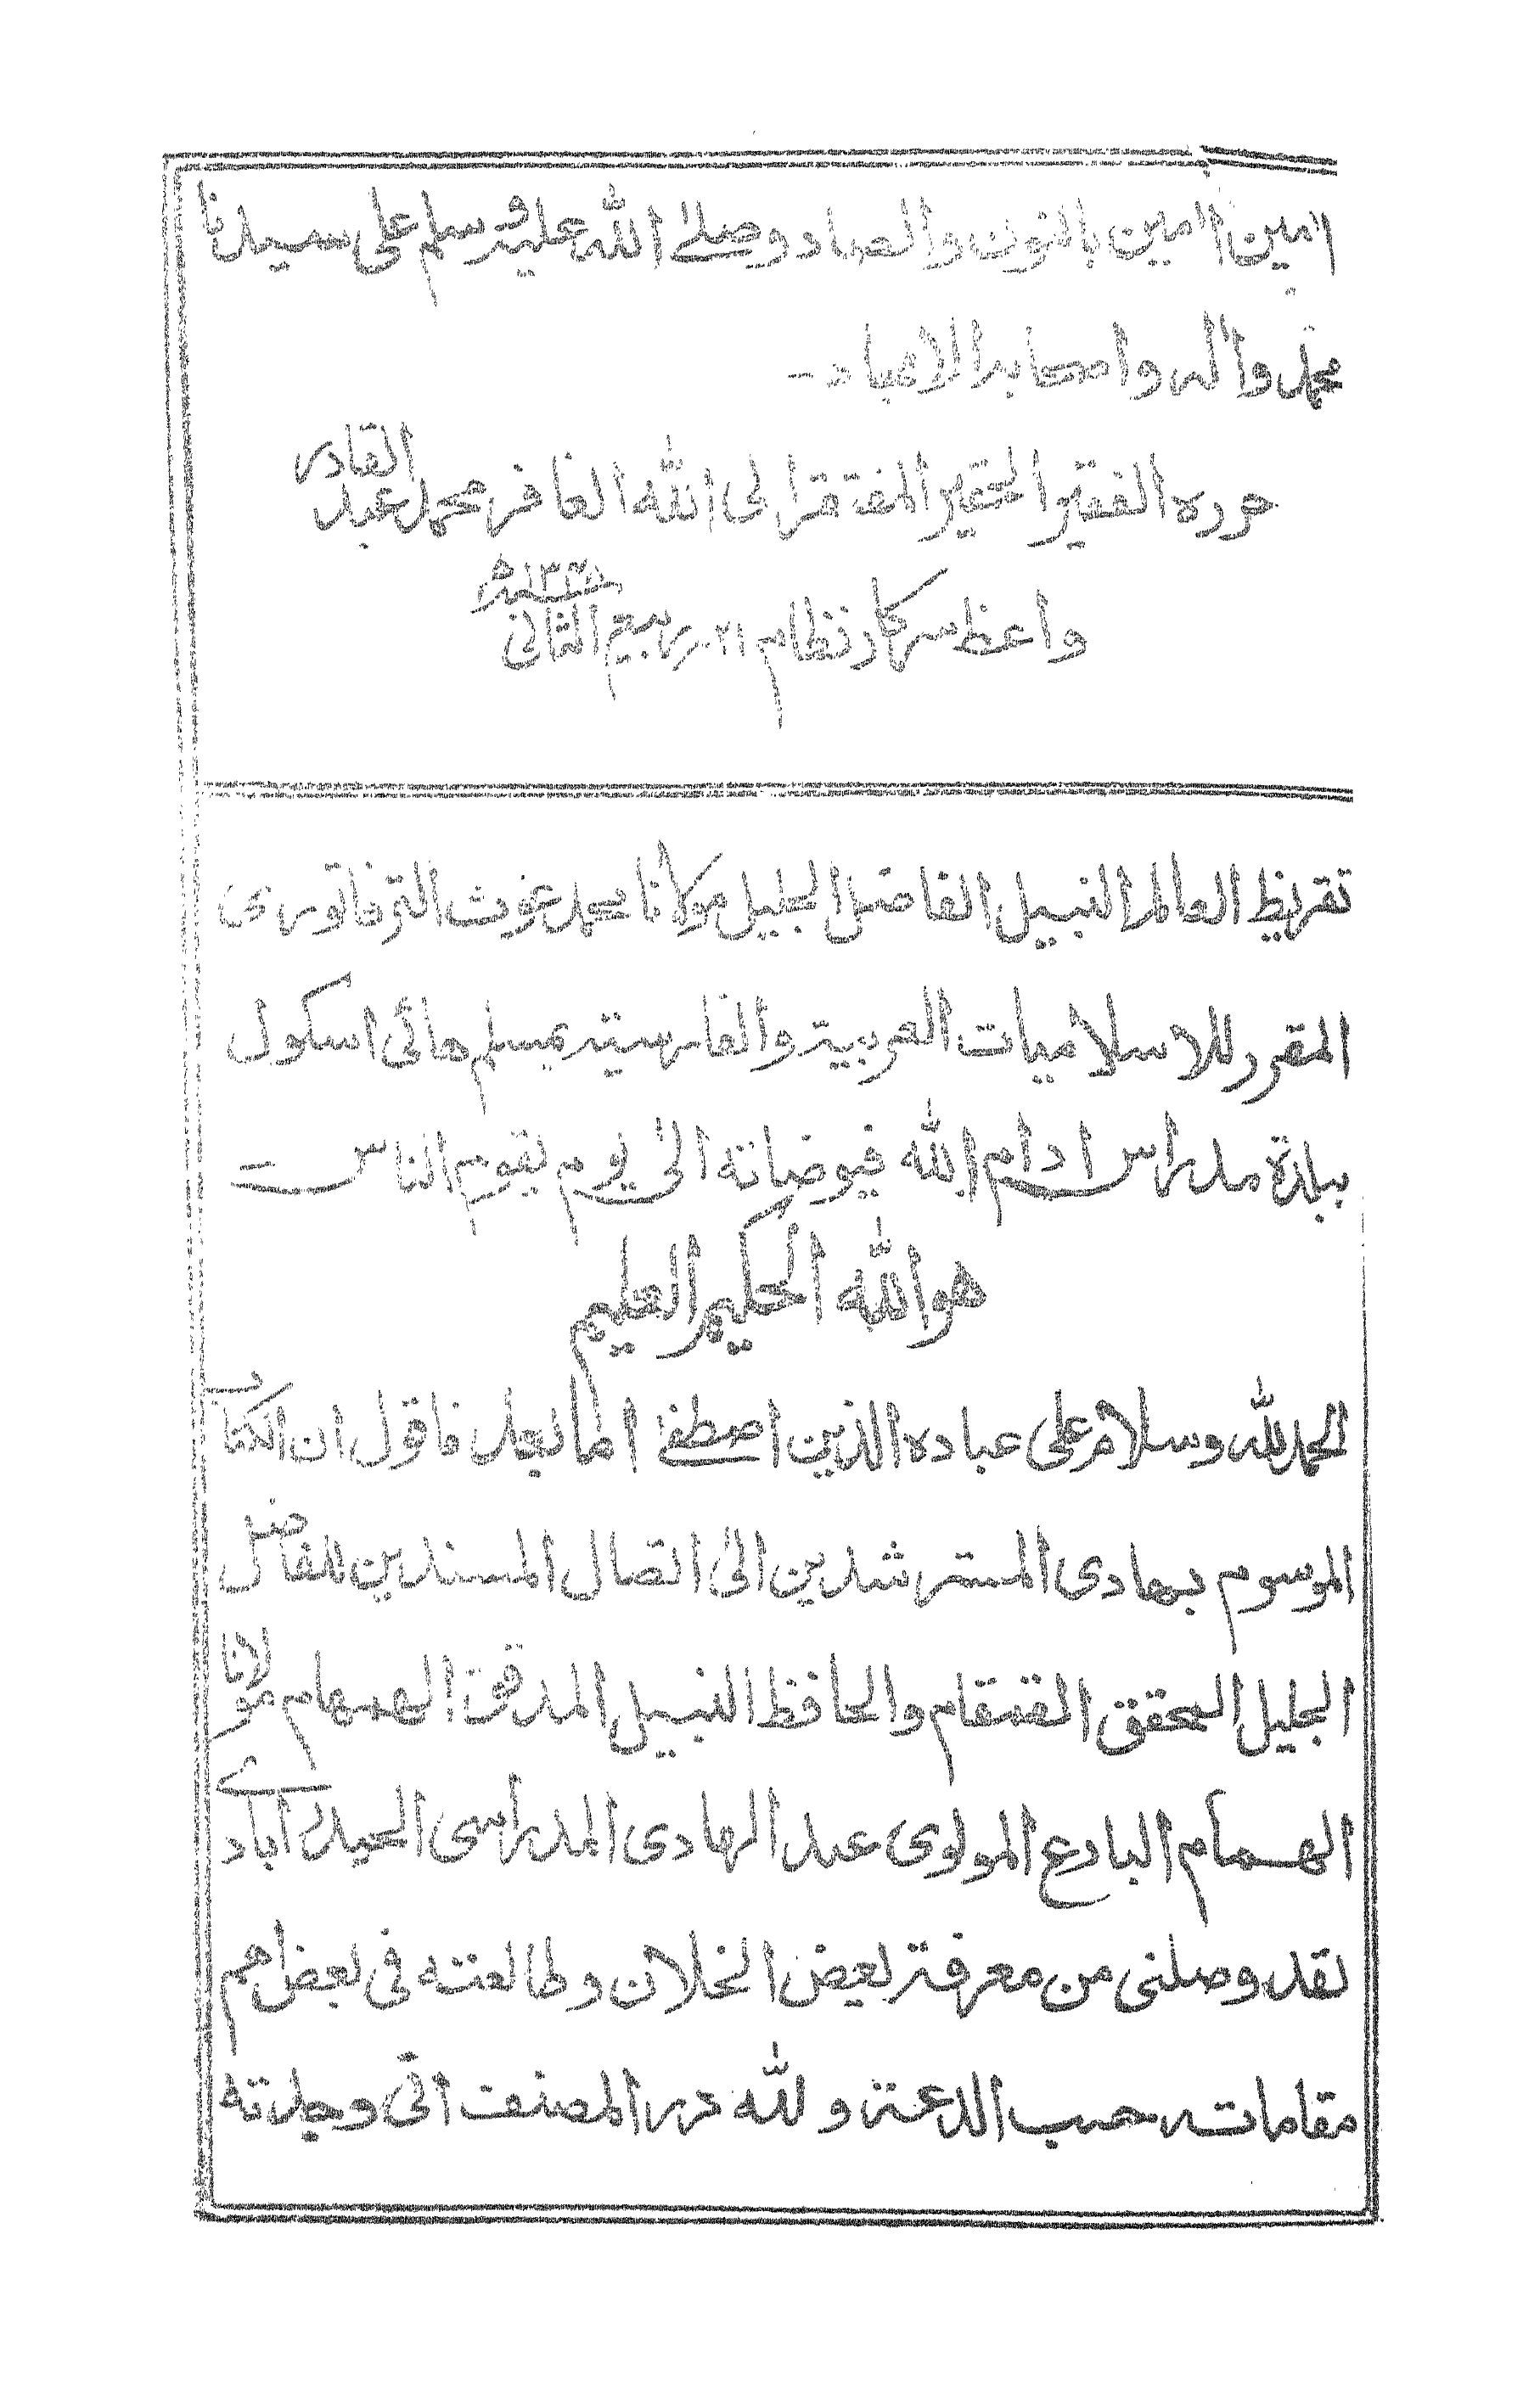 امين امين بالنون والصاد وصلے الله عليه وسلم على سيدنا
محمد واله واصحابه الامجاد -
حرره الفقير الحقير المفتقر الى الله الغافر محمد عبد القادر
واعظ سركار نظام ٢١- ربيع الثانى
تقريظ العالم النبيل الفاضل الجليل مولانا محمد غوث الترفاتورى
المقرر للاسلاميات العربية والفارسية بمسلم هائى اسكول
ببلدة مدراس ادام الله فيوضاته الى يوم يقوم الناس -
هو الله الحكيم العليم
الحمد لله وسلام على عباده الذين اصطفے اما بعد فاقول ان الكتاب
الموسوم بهادى المسترشدين الى اتصال المسندين للفاضل
الجليل المحقق القمقام والحافظ النبيل المدقق الهمهام مولانا
الهمام البارع المولوى عبد الهادى المدراسى الحيدرآبادے
لقد وصلنى من معرفة بعض الخلان وطالعته فى بعض اهم
مقاماته حسب الدعة ولله در المصنف انى وجدته